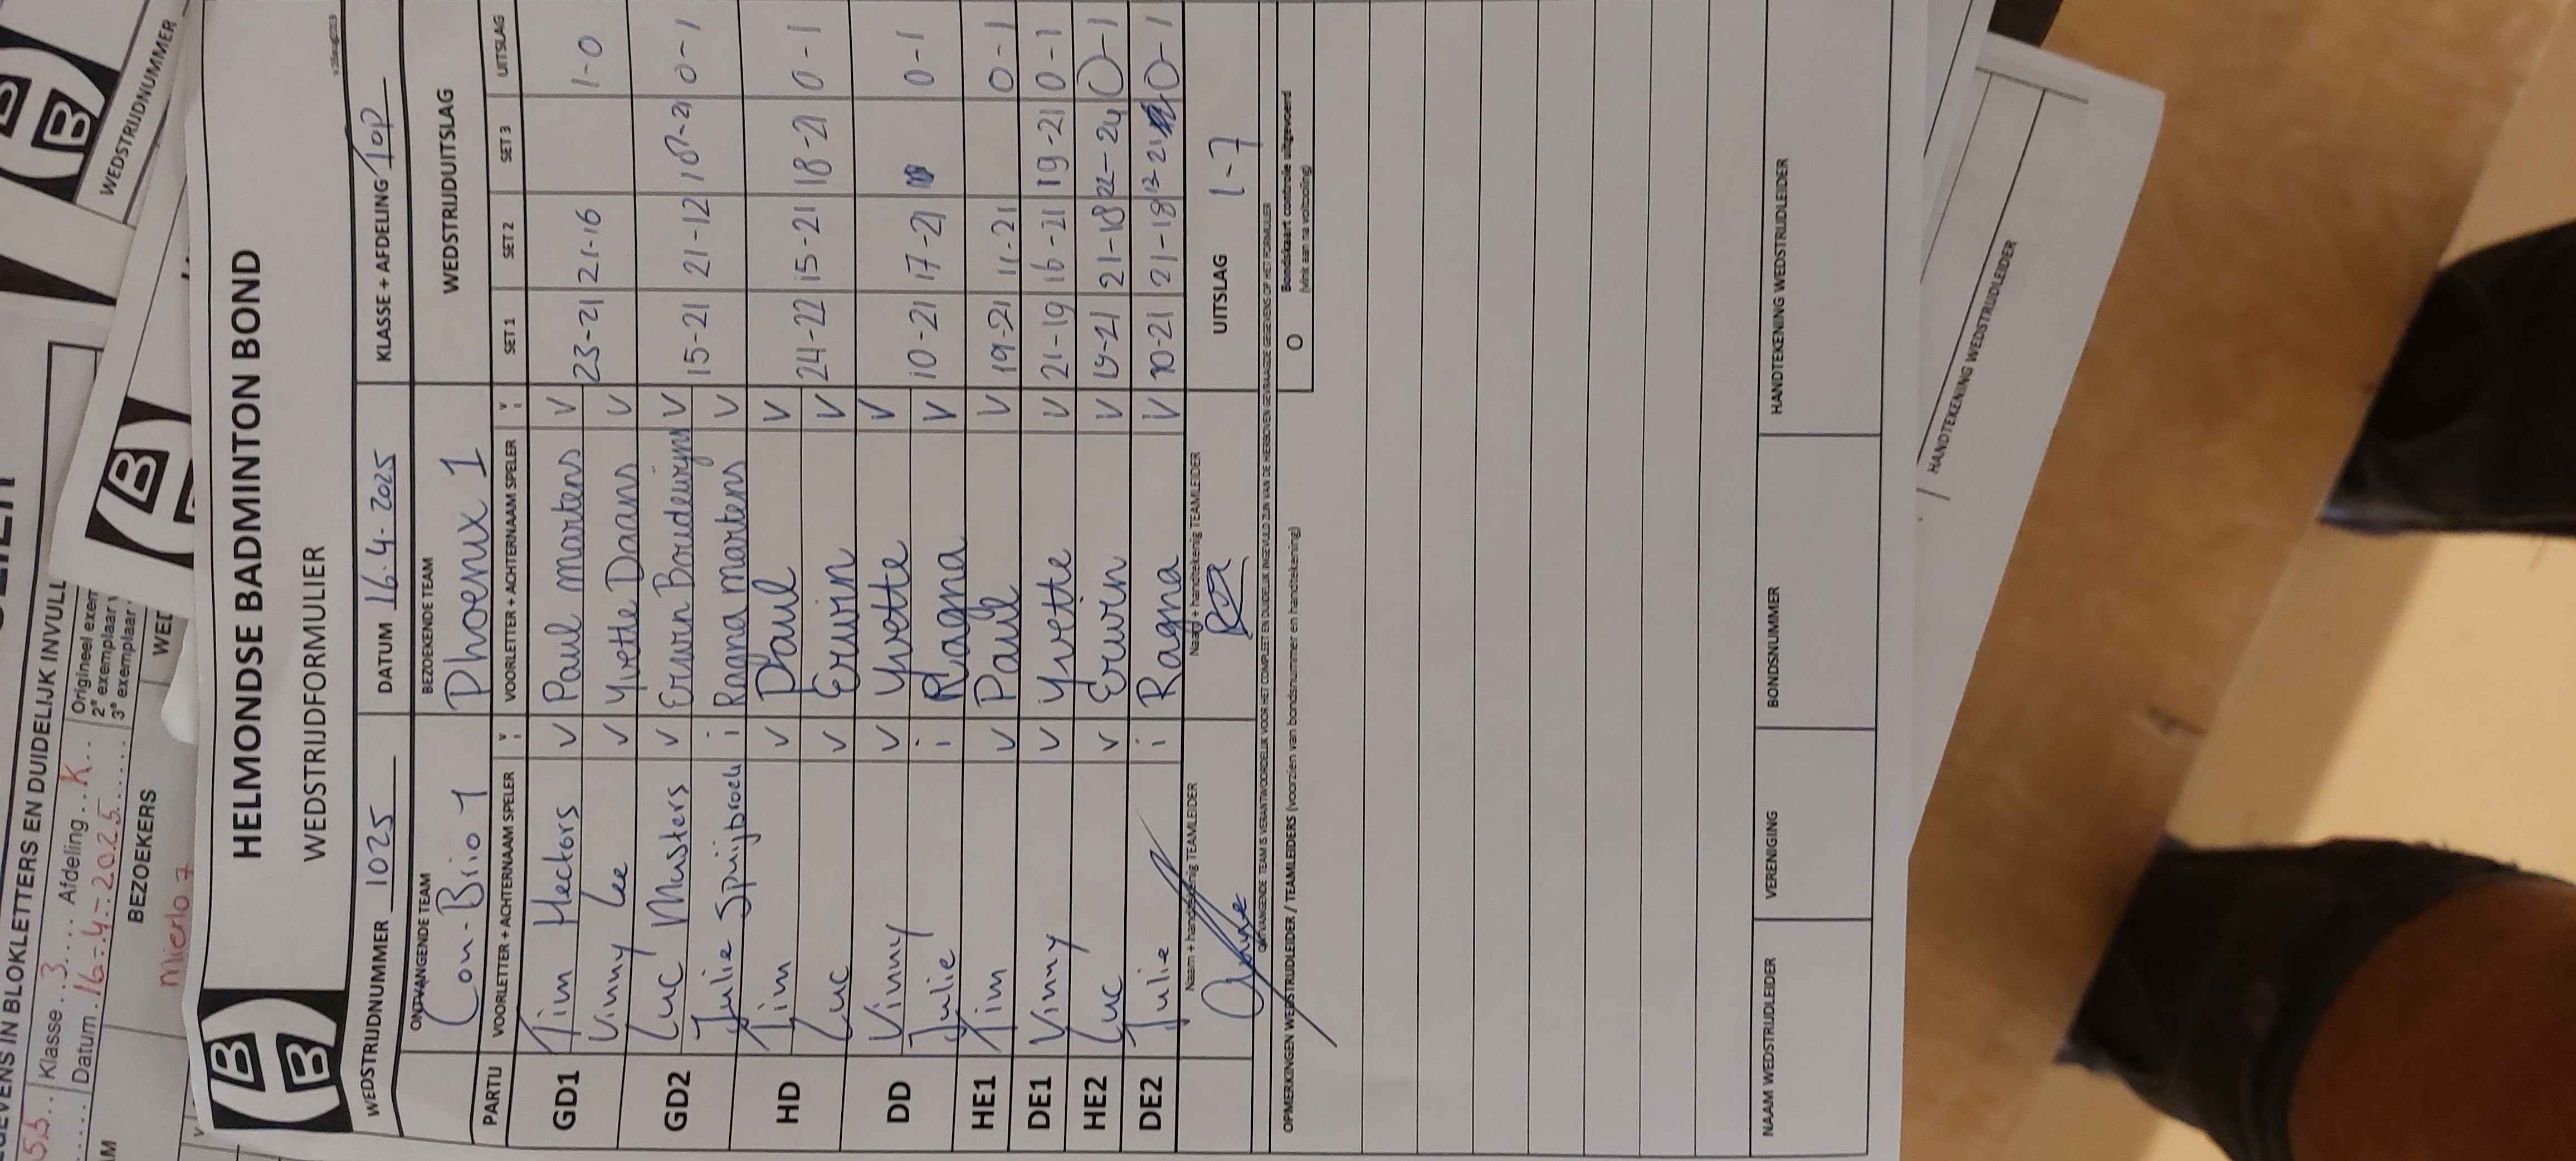 HELMONDSE BADMINTON BOND
WEDSTRIJDFORMULIER
WEDSTRIJDNUMMER 1025 DATUM 16-4-2025 KLASSE + AFDELING TOP
ONTVANGENDE TEAM BEZOEKENDE TEAM WEDSTRIJDUITSLAG
Con-Brio 1 Phoenix 1
PARTU VOORLETTER + ACHTERNAAM SPELER V i VOORLETTER + ACHTERNAAM SPELER V i SET 1 SET 2 SET 3 UITSLAG
GD1 Tim Hectors V Paul martens V 23-21 21-16 1-0
Vinny Lee V Yvette Daans V
GD2 Luc Musters V Erwin Boudewijns V 15-21 21-12 18-21 0-1
Julie Spruijbroek i Ragna martens V
HD Tim V Paul V 24-22 15-21 18-21 0-1
Luc V Erwin V
DD Vinny V Yvette V 10-21 17-21 0-1
Julie i Ragna V
HE1 Tim V Paul V 19-21 11-21 0-1
DE1 Vinny V Yvette V 21-19 16-21 19-21 0-1
HE2 Luc V Erwin V 19-21 21-18 22-24 0-1
DE2 Julie i Ragna V 10-21 21-18 13-21 0-1
Naam + handtekenig TEAMLEIDER Naam + handtekenig TEAMLEIDER UITSLAG 1-7
ONTVANGENDE TEAM IS VERANTWOORDELIJK VOOR HET COMPLEET EN DUIDELIJK INGEVULD ZIJN VAN DE HIERBOVEN GEVRAAGDE GEGEVENS OP HET FORMULIER
OPMERKINGEN WEDSTRIJDLEIDER / TEAMLEIDERS (voorzien van bondsnummer en handtekening) O Bondskaart controle uitgevoerd
(vink aan na voltooing)
NAAM WEDSTRIJDLEIDER VERENIGING BONDSNUMMER HANDTEKENING WEDSTRIJDLEIDER
HANDTEKENING WEDSTRIJDLEIDER
WEDSTRIJDNUMMER
GEVENS IN BLOKLETTERS EN DUIDELIJK INVULL
Klasse 3 Afdeling K
Datum 16-4-2025
Origineel exem
2e exemplaar
3e exemplaar
BEZOEKERS WED
Mierlo 7